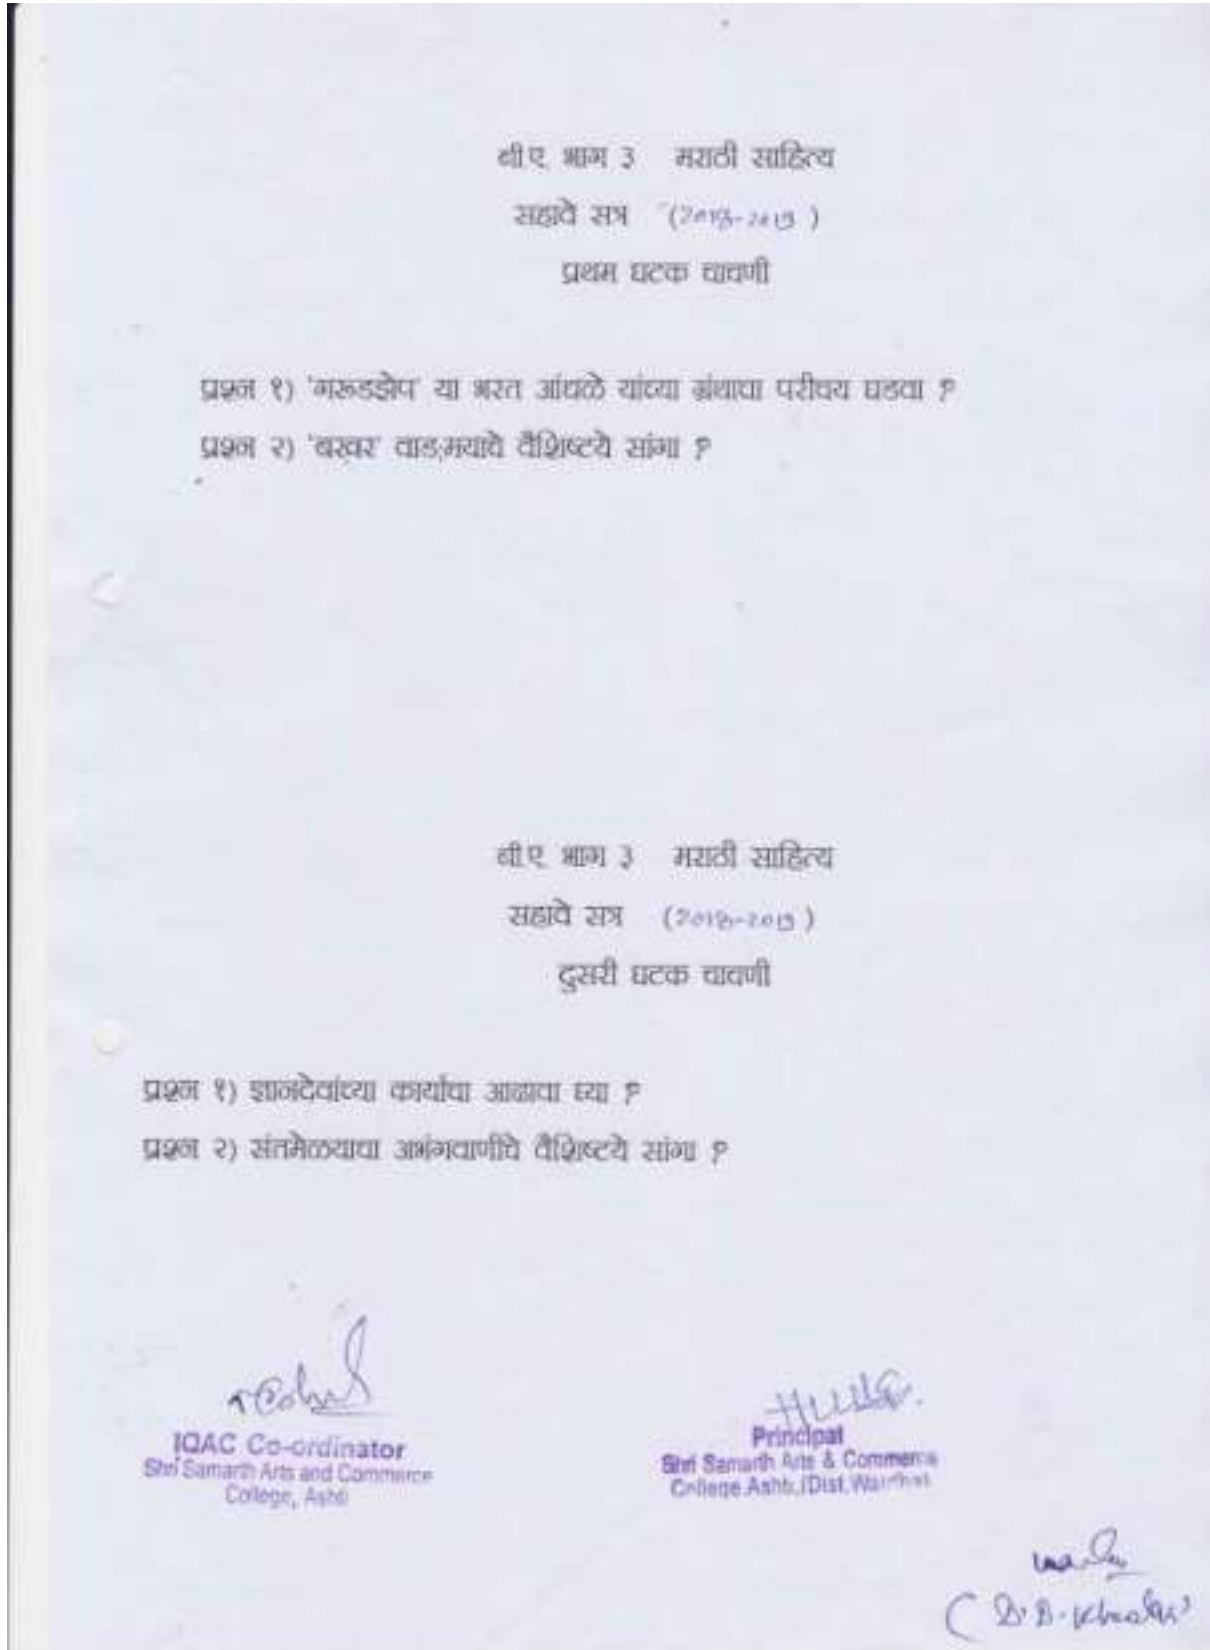 बी.ए. भाग ३ मराठी साहित्य
सहावे सत्र
प्रथम घटक चाचणी
प्रश्न १) 'गरूडझेप' या भरत आंधळे यांच्या ग्रंथाचा परीचय घडवा ?
प्रश्न २) 'बखर' वाङ्मयाचे वैशिष्टये सांगा ?
बी.ए. भाग ३ मराठी साहित्य
सहावे सत्र
दुसरी घटक चाचणी
प्रश्न १) ज्ञानदेवांच्या कार्याचा आढावा घ्या ?
प्रश्न २) संतमेळयाचा अभंगवाणीचे वैशिष्टये सांगा ?
IQAC Co-ordinator
Shri Samarth Arts and Commerce
College, Ashti
Principal
Shri Samarth Arts & Commerce
College, Ashti, (Dist. Wardha)